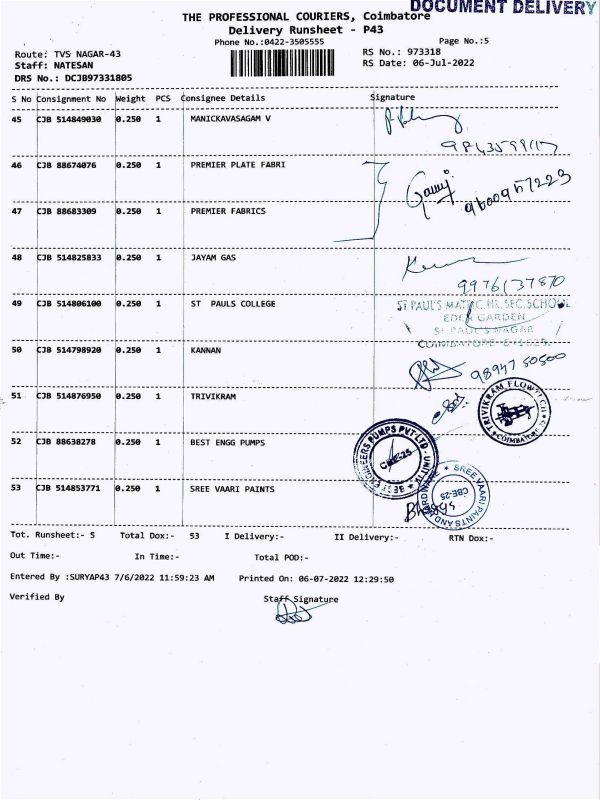 DOCUMENT DELIVERY
THE PROFESSIONAL COURIERS, Coimbatore
Delivery Runsheet - P43
Phone No.:0422-3505555
Page No.:5
Route: TVS NAGAR-43
RS No.: 973318
Staff: NATESAN
RS Date: 06-Jul-2022
DRS No.: DCJB97331805
S No Consignment No Weight PCS Consignee Details Signature
45 CJB 514849030 0.250 1 MANICKAVASAGAM V
46 CJB 88674076 0.250 1 PREMIER PLATE FABRI
9600957223
47 CJB 88683309 0.250 1 PREMIER FABRICS
48 CJB 514825833 0.250 1 JAYAM GAS
9976137870
49 CJB 514806100 0.250 1 ST PAULS COLLEGE
ST.PAUL'S MATRIC.HR.SEC.SCHOOL
EDEN GARDEN
ST PAUL'S NAGAR
COIMBATORE-641025.
50 CJB 514798920 0.250 1 KANNAN
98947 50500
51 CJB 514876950 0.250 1 TRIVIKRAM
TRIVIKRAM FLOWTECH
COIMBATORE
52 CJB 88638278 0.250 1 BEST ENGG PUMPS
BEST ENGINEERS PUMPS PVT LTD - UNIT IV
CBE-25
53 CJB 514853771 0.250 1 SREE VAARI PAINTS
SREE VAARI PAINTS AND HARDWARE
CBE-25
Tot. Runsheet:- 5 Total Dox:- 53 I Delivery:- II Delivery:- RTN Dox:-
Out Time:- In Time:- Total POD:-
Entered By :SURYAP43 7/6/2022 11:59:23 AM Printed On: 06-07-2022 12:29:50
Verified By Staff Signature